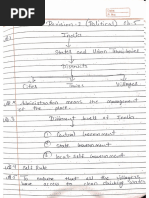 Revision-1 (Political) Ch-5
India
States and Union Territories
Districts
Cities
Towns
Villages
Administration means the management
of the place.
Different levels of India
1 Central Government
2 State Government
3 local self Government
To ensure that all the villagers
have access to clean drinking